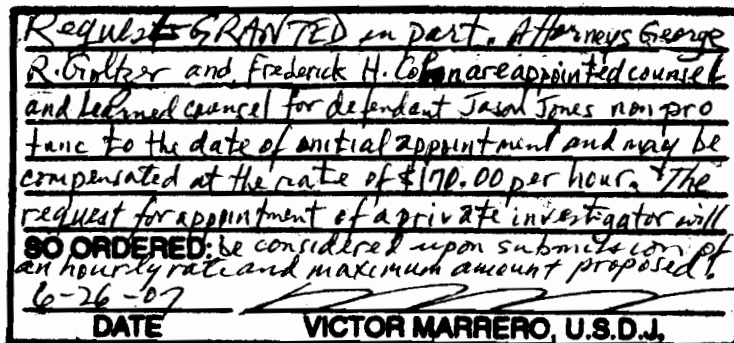 Requests GRANTED in part. Attorneys George
R. Goltzer and Frederick H. Cohn are appointed counsel
and learned counsel for defendant Jason Jones non pro
tunc to the date of initial appointment and may be
compensated at the rate of $170.00 per hour. The
request for appointment of a private investigator will
SO ORDERED: be considered upon submission of
an hourly rate and maximum amount proposed.
6-26-07
DATE VICTOR MARRERO, U.S.D.J.